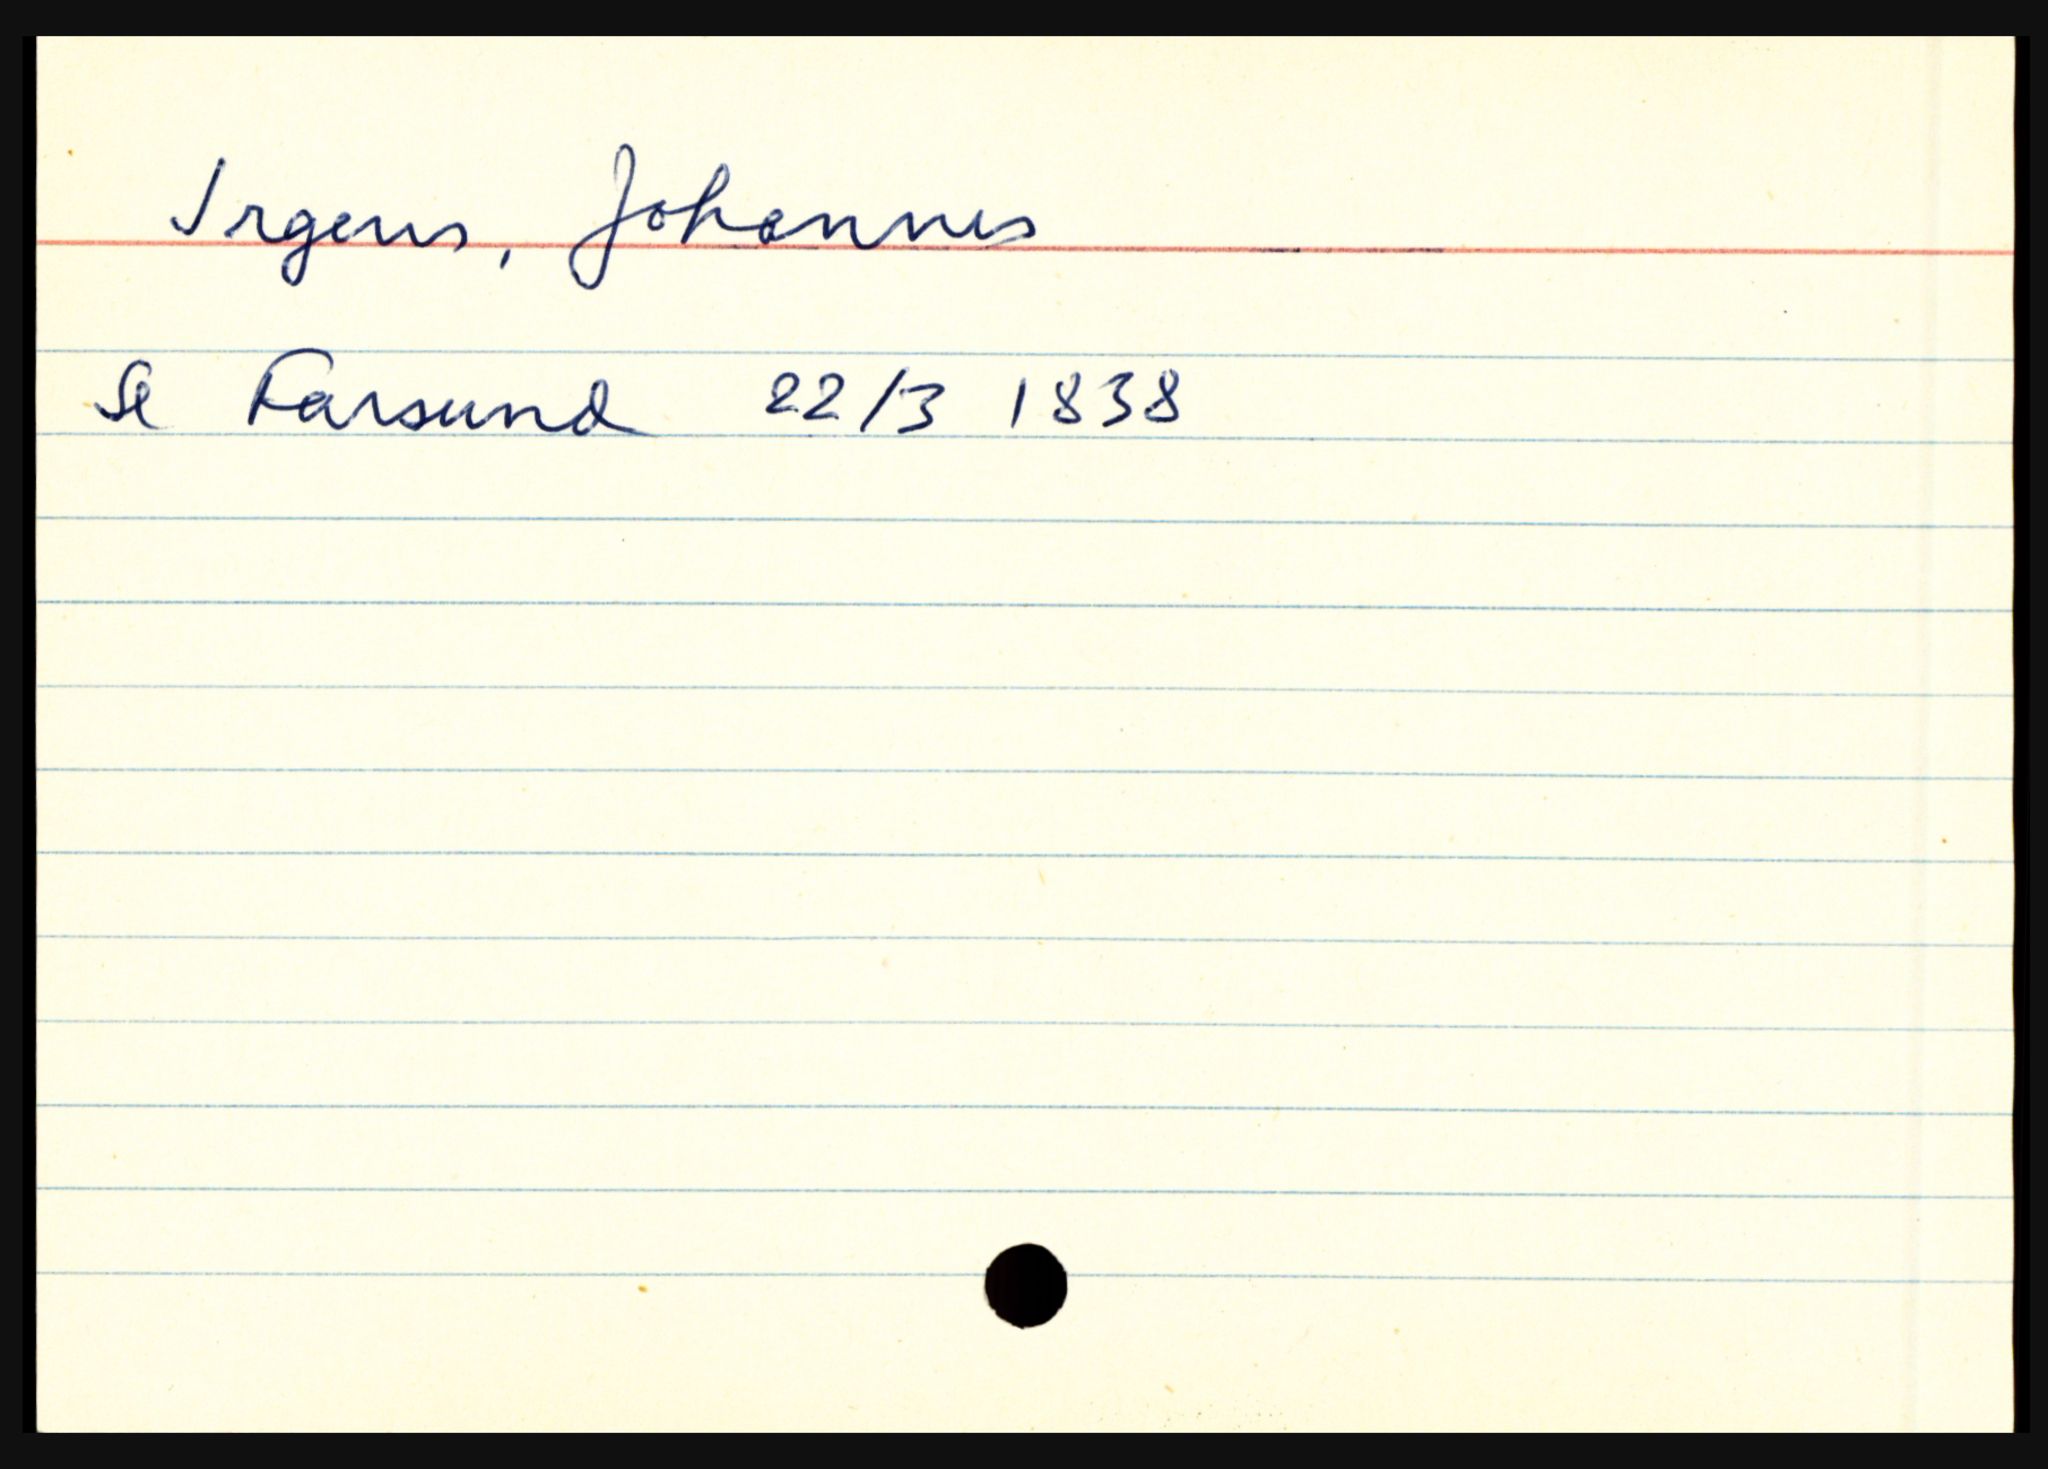 Irgens, Johannes
Se Farsund 22/3 1838